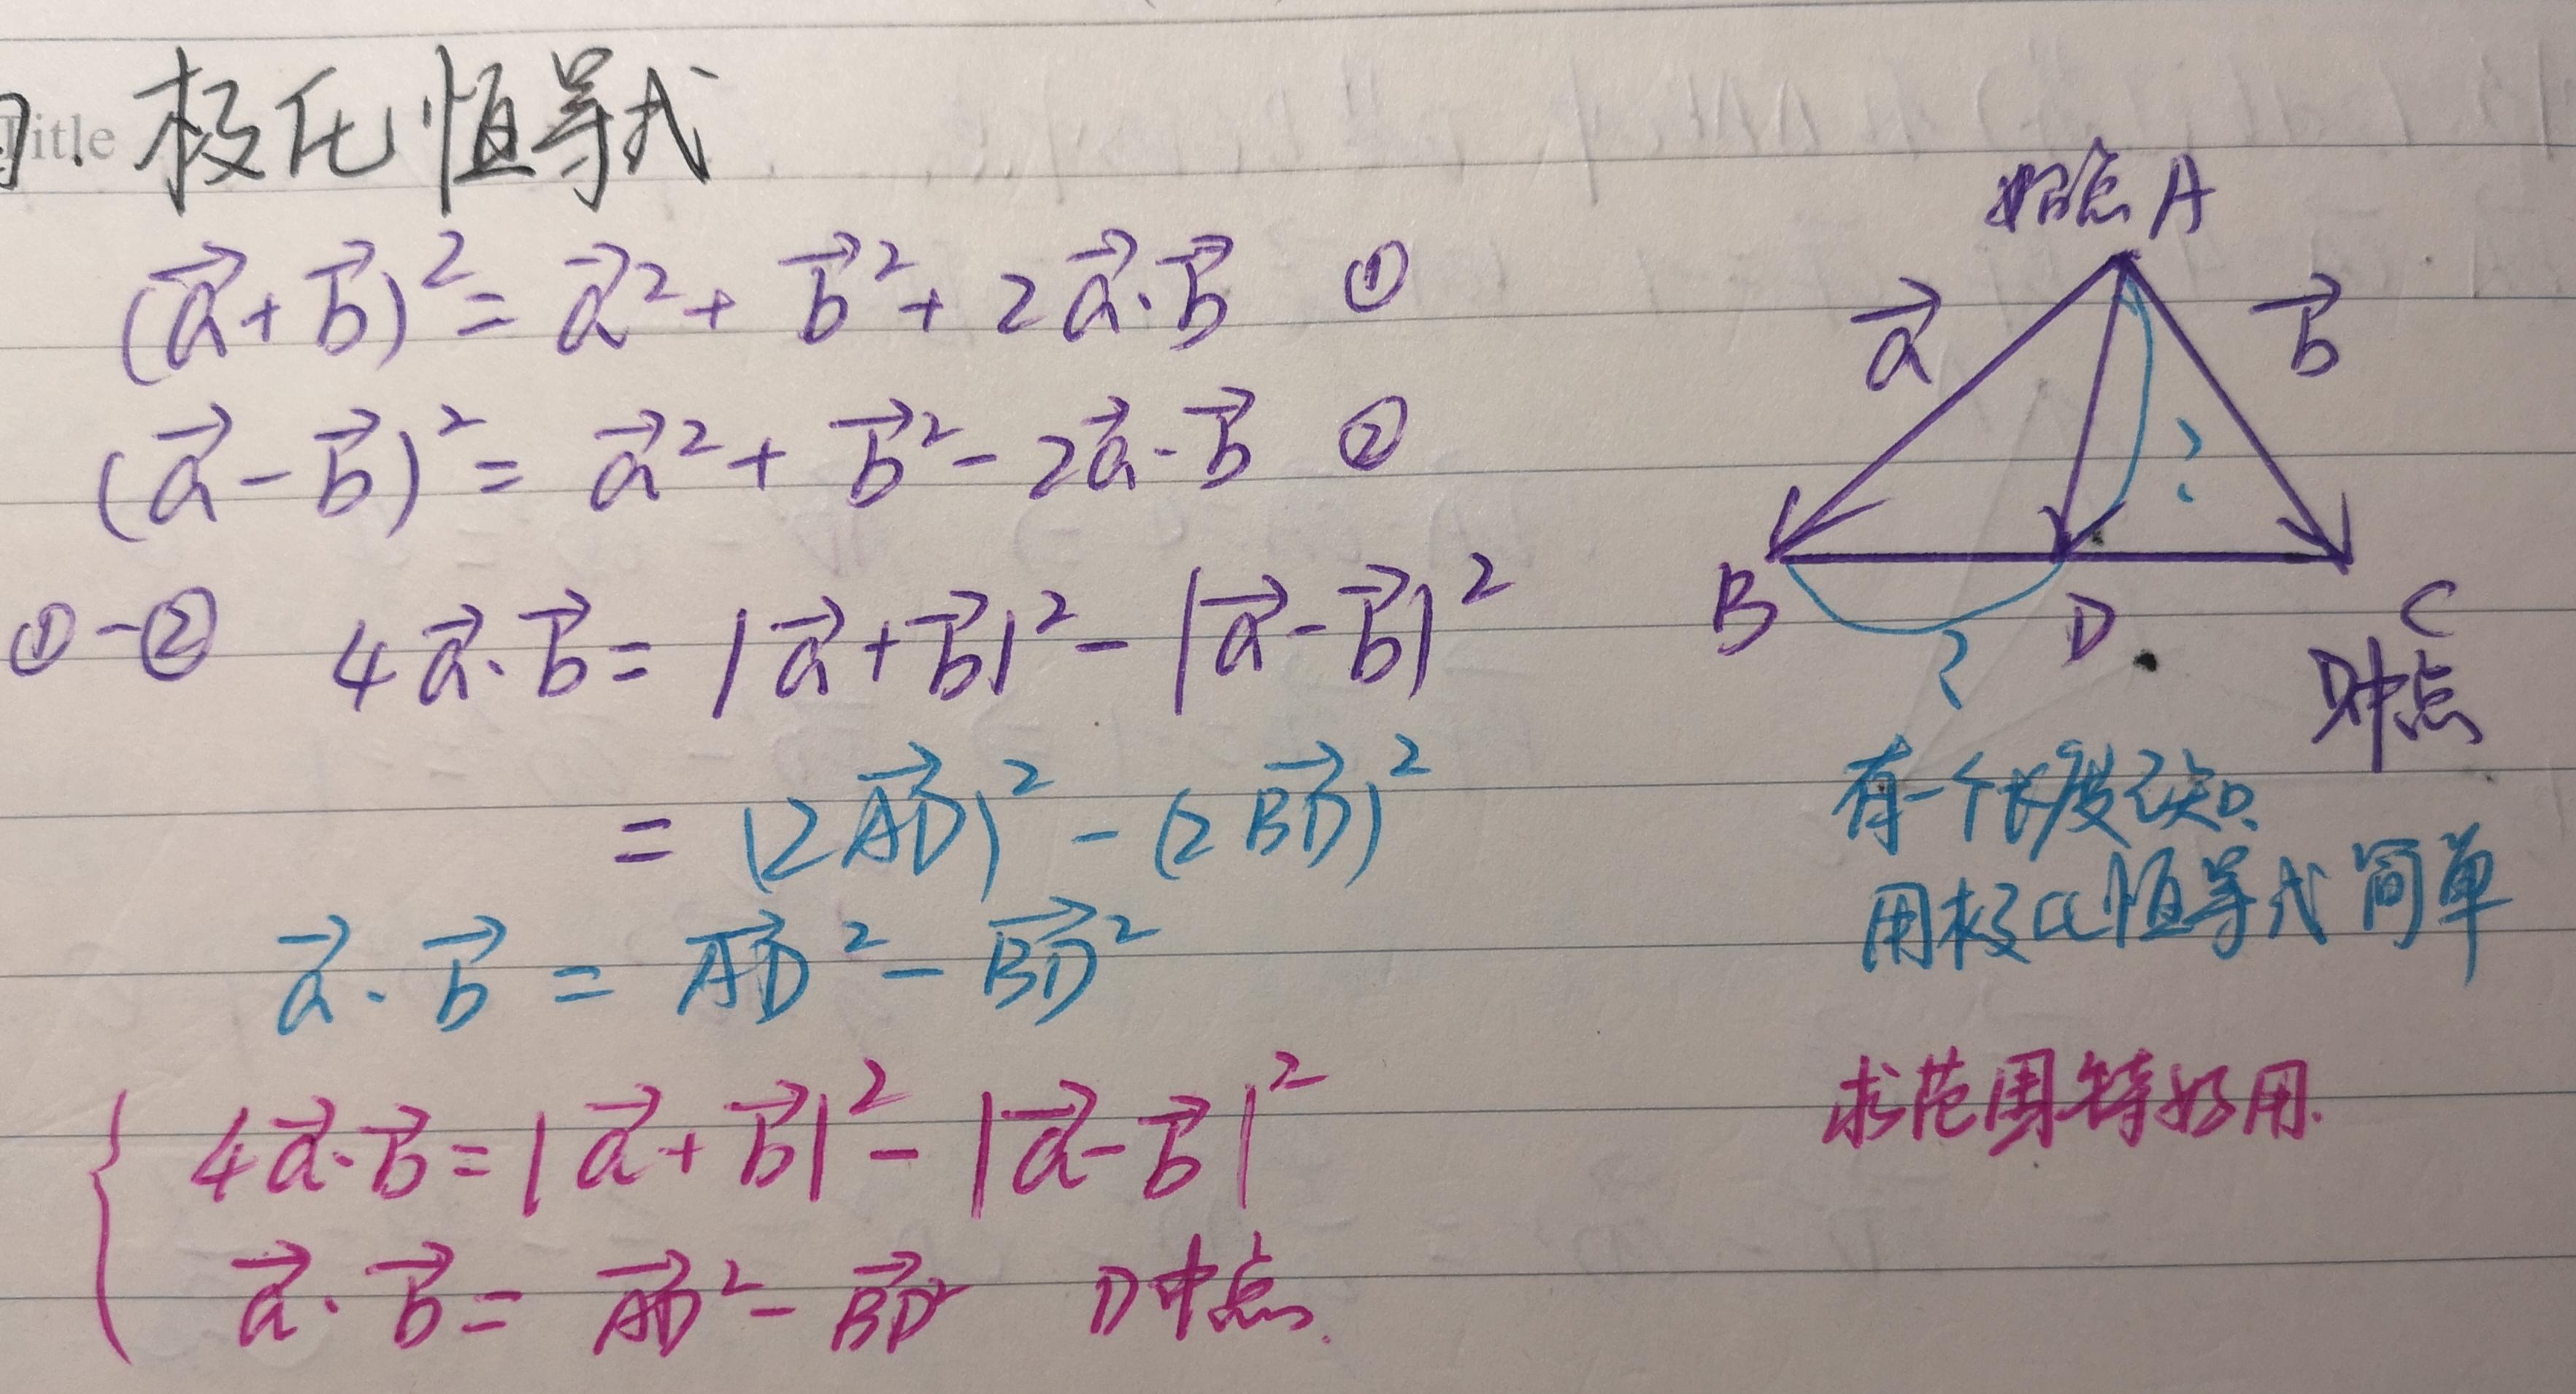 极化恒等式
itle
(a⃗+b⃗)²= a⃗²+ b⃗²+ 2a⃗·b⃗ ①
(a⃗-b⃗)²= a⃗²+ b⃗²- 2a⃗·b⃗ ②
①-② 4a⃗·b⃗= |a⃗+b⃗|²- |a⃗-b⃗|²
= (2AD⃗)²- (2BD⃗)²
a⃗·b⃗ = AD⃗²- BD⃗²
4a⃗·b⃗=|a⃗+b⃗|²- |a⃗-b⃗|²
a⃗·b⃗= AD⃗²- BD⃗² D中点.
A
a⃗ b⃗
?
B D C
?
D中点
有一个长度已知
用极化恒等式简单
求范围特好用.